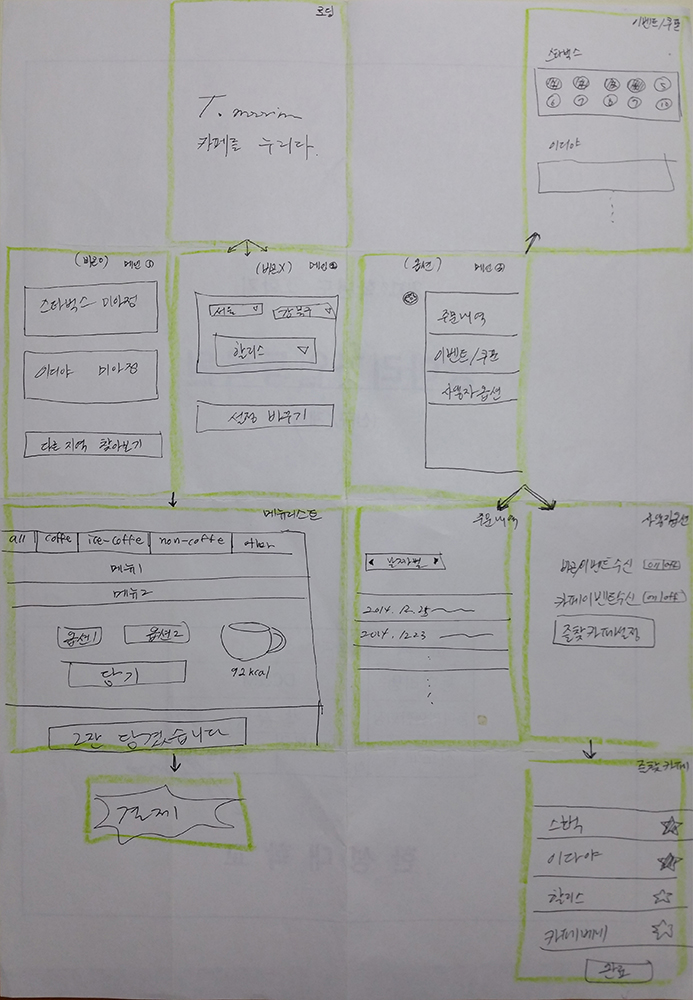 로딩
T. morim
카페를 누리다.
이벤트/쿠폰
스타벅스
5
6 7 8 9 10
이디야
(비콘O) 메인①
스타벅스 미아점
이디야 미아점
다른지역 찾아보기
(비콘X) 메인②
서울 ▽ 강북구 ▽
할리스 ▽
설정 바꾸기
(옵션) 메인③
주문내역
이벤트/쿠폰
사용자옵션
메뉴리스트
all coffe ice-coffe non-coffe
메뉴1
메뉴2
옵션1 옵션2
담기
92kcal
2잔 담겼습니다
결제
주문내역
◀ 날짜별 ▶
2014.12.25
2014.12.23
사용자옵션
비콘이벤트수신 on/off
카페이벤트수신 on/off
즐찾카페설정
즐찾카페
스벅
이디야
할리스
카페베네
완료